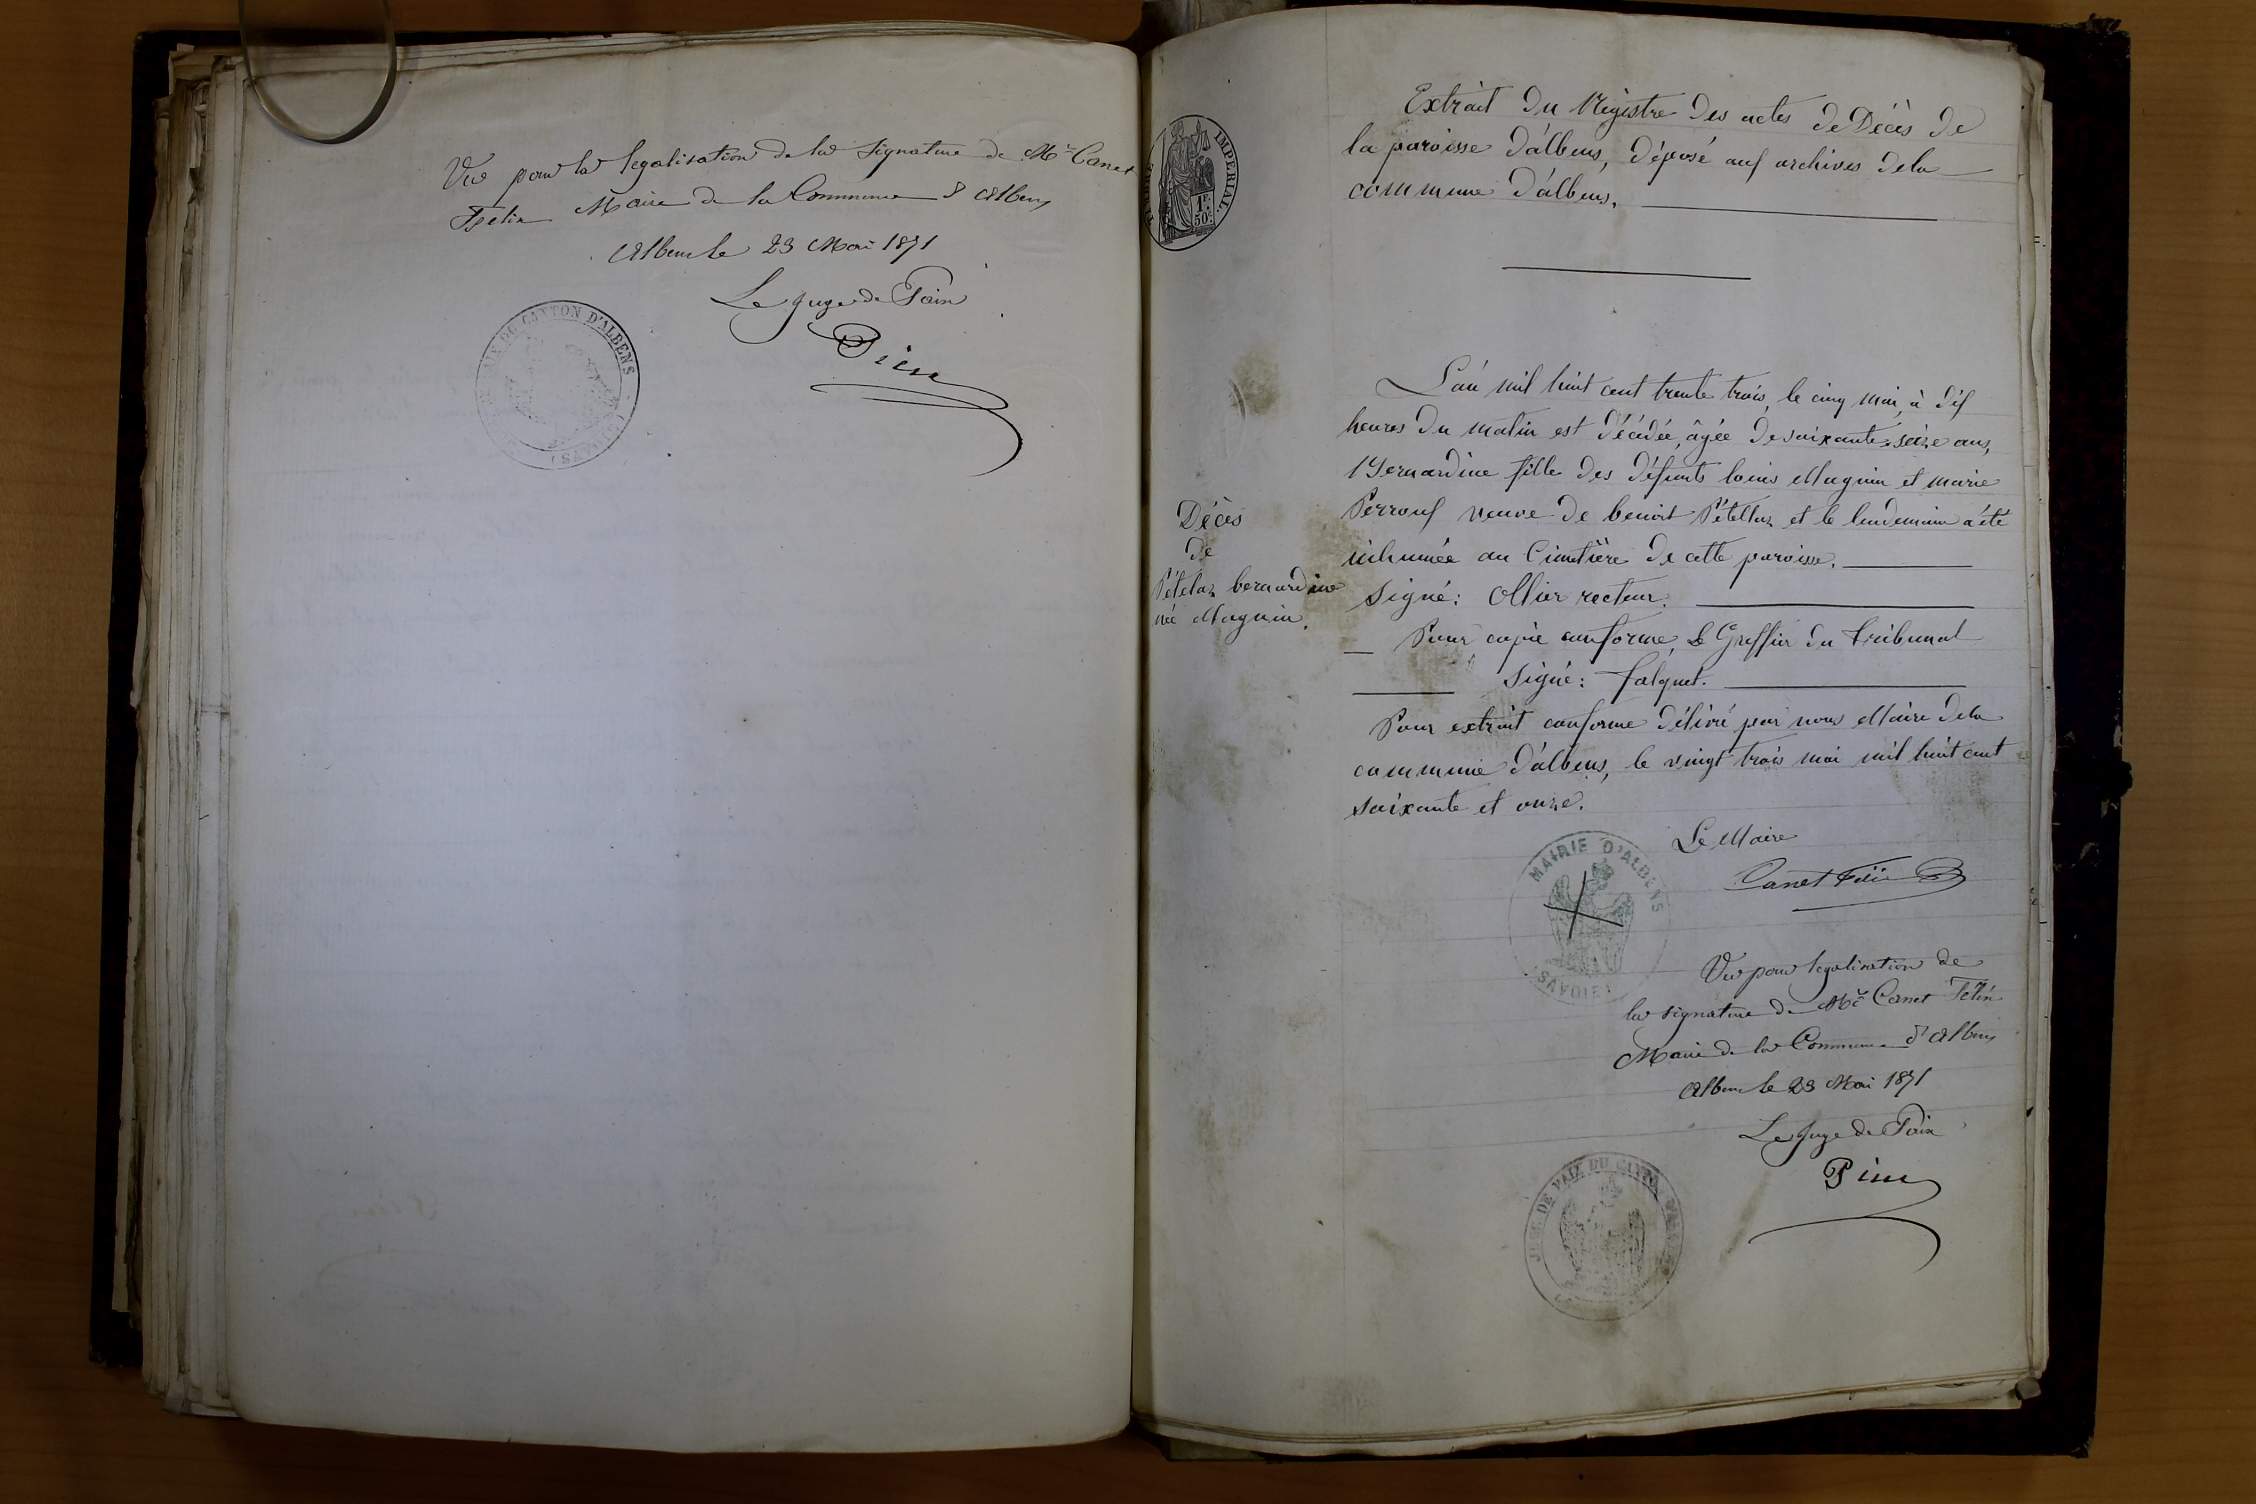 Vu pour la legalisation de la signature de Mr Canet
Félix Maire de la Commune d'Albens
Albens le 23 Mai 1871
Le Juge de Paix
CANTON D'ALBENS
IMPERIAL
1F.
50c.
Extrait du Régistre des actes de Décès de
la paroisse d'albens, déposé aux archives de la
commune d'albens.
L'an mil huit cent trente trois, le cinq mai, à dix
heures du matin est décédée, âgée de soixante-seize ans,
Bernardine fille des défunts louis Magnin et marie
Perroux veuve de benoit Pétellaz et le lendemain a été
inhumée au Cimetière de cette paroisse.
Signé: Ollier recteur.
Pour copie conforme, le Greffier du tribunal
Signé: falquet.
Décès
de
Pételaz bernardine
née Magnin.
Pour extrait conforme délivré par nous Maire de la
commune d'albens, le vingt trois mai mil huit cent
soixante et onze.
Le Maire
Canet Félix
MAIRIE D'ALBENS
SAVOIE
Vu pour legalisation de
la signature de Mr Canet Félix
Maire de la Commune d'Albens
Albens le 23 Mai 1871
Le Juge de Paix
DE PAIX DU CANTON